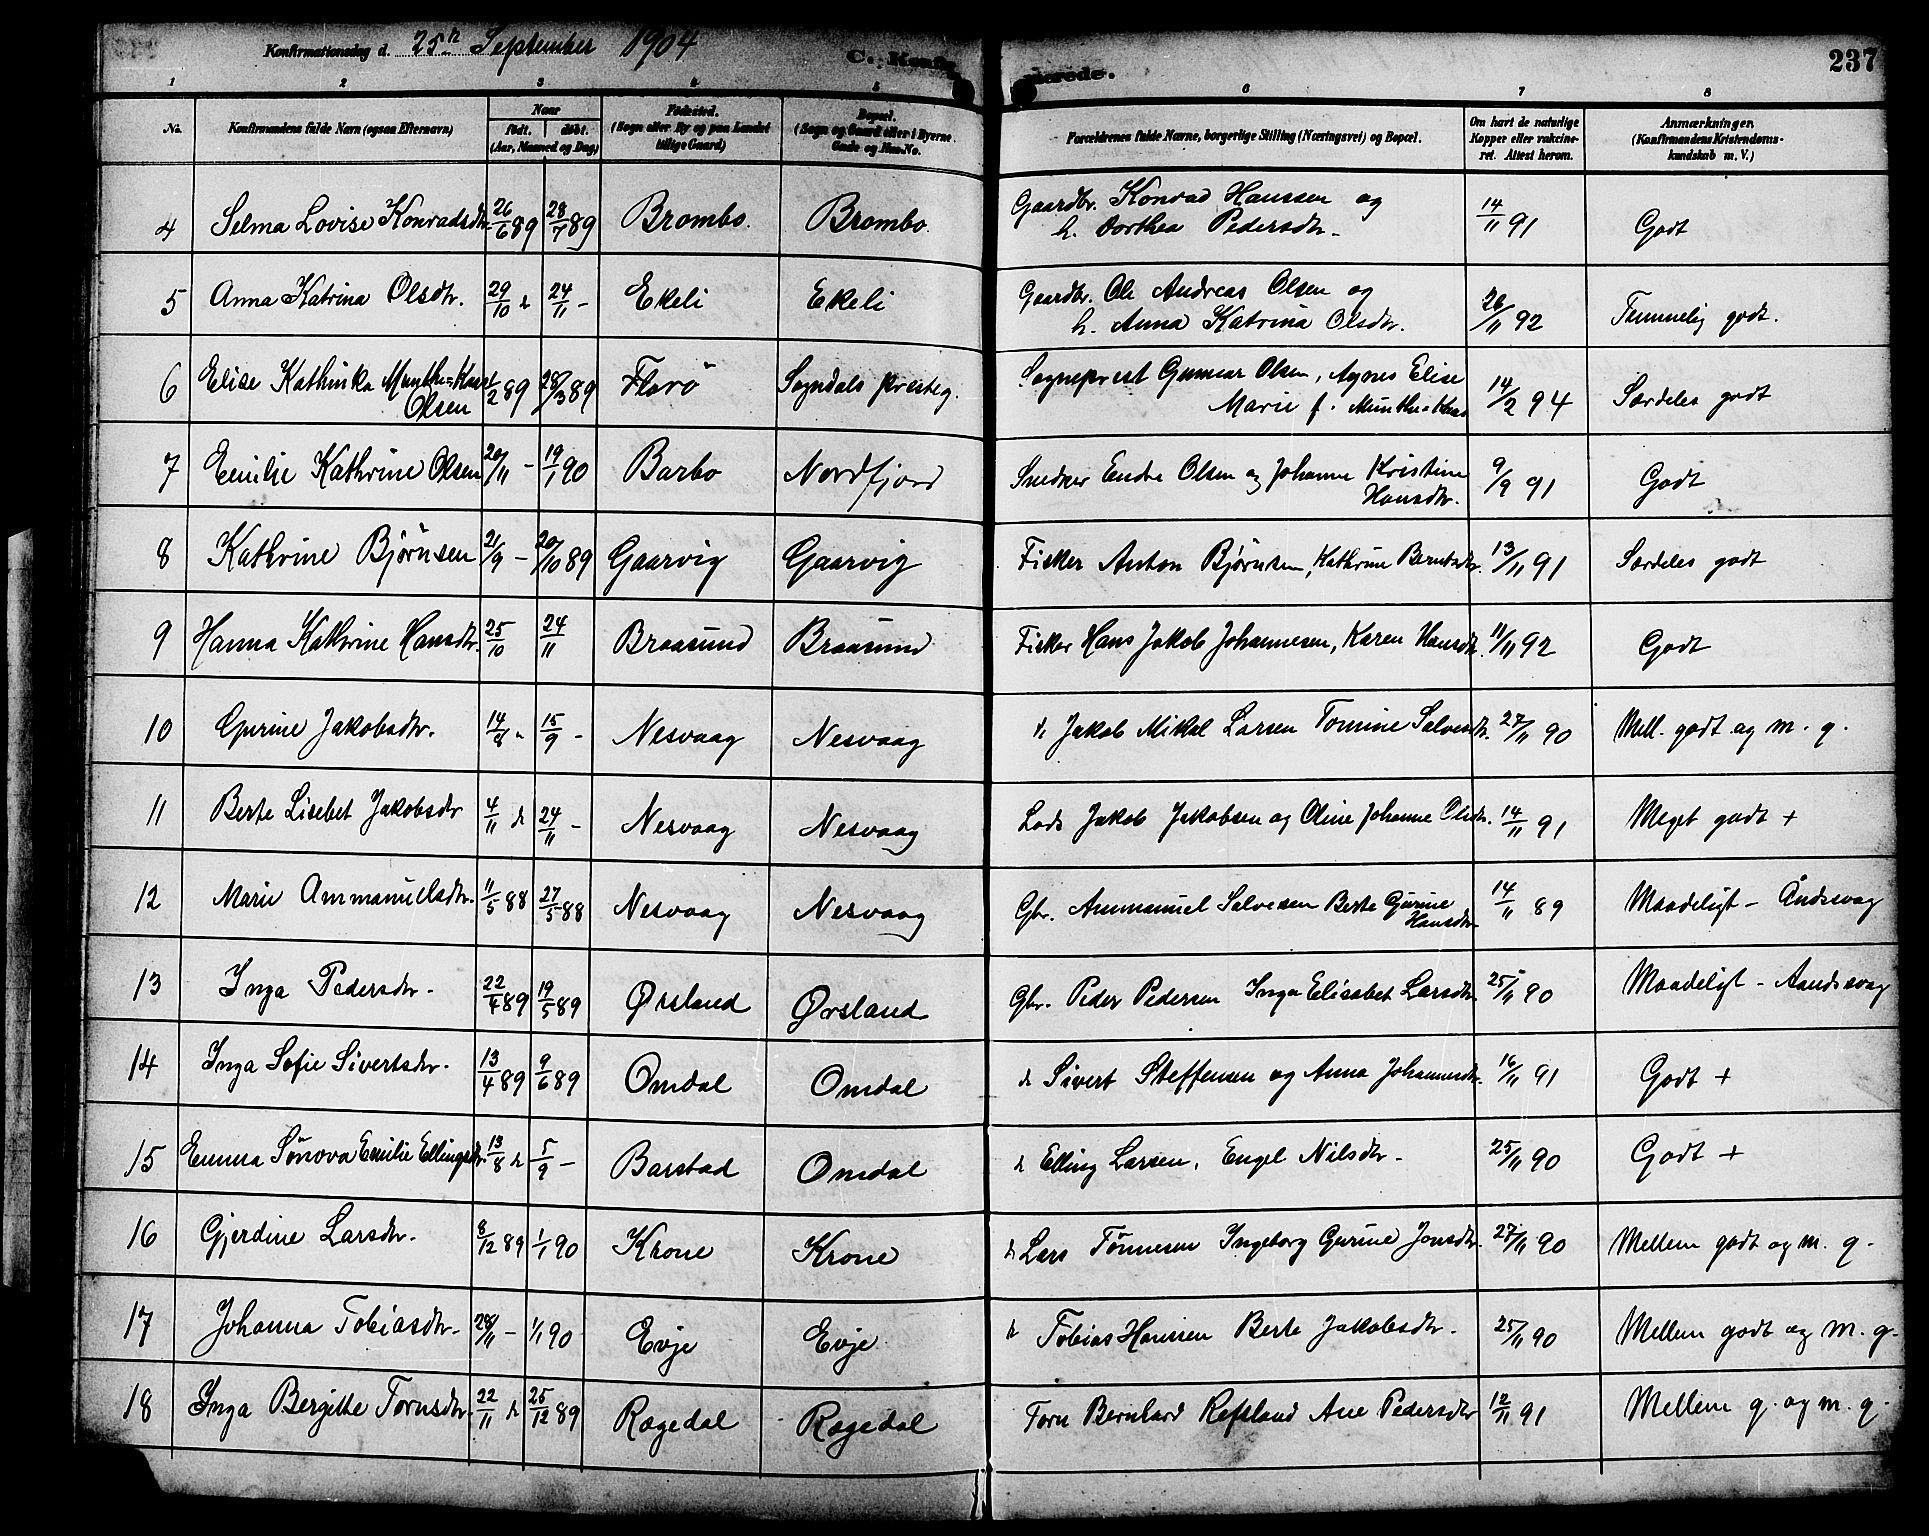 Konfirmationsdag d. 25de September 1904 C. Konfirmerede. 237
1 2 3 4 5 6 7 8
No. Konfirmandens fulde Navn (ogsaa Efternavn) Naar født. døbt. (Aar, Maaned og Dag) Fødested. (Sogn eller By og paa Landet tillige Gaard) Bopæl. (Sogn og Gaard eller i Byerne Gade og Hus-No. Forældrenes fulde Navne, borgerlige Stilling (Næringsvei) og Bopæl. Om havt de naturlige Kopper eller vakcineret. Attest herom. Anmærkninger. (Konfirmandens Kristendomskundskab m. V.)
4 Selma Lovise Konradsdtr. 26/6 89 28/7 89 Brombo. Brombo. Gaardbr. Konrad Hanssen og 14/11 91 Godt
h. Dorthea Pedersdtr.
5 Anna Katrina Olsdtr. 29/10 d 24/11 - Ekeli Ekeli Gaardbr. Ole Andreas Olsen og 26/11 92 Temmelig godt.
h. Anna Katrina Olsdtr.
6 Elise Kathinka Munthe=Kaas 1/2 89 28/3 89 Florö Sogndals presteg. Sogneprest Gunnar Olsen, Agnes Elise 14/2 94 Særdeles godt
Olsen Marie f. Munthe=Kaas
7 Emilie Kathrine Olsen 20/11 - 19/1 90 Barbo Nordfjord Snedker Endre Olsen og Johanne Kristine 9/9 91 Godt
Hansdtr.
8 Kathrine Bjørnsen 21/9 - 20/10 89 Gaarvig Gaarvig Fisker Anton Bjørnsen, Kathrine Berntsdtr. 13/11 91 Særdeles godt
9 Hanna Kathrine Hansdtr. 25/10 24/11 Braasund Braasund Fisker Hans Jakob Johannesen, Karen Hansdtr. 11/11 92 Godt
10 Gurine Jakobsdtr. 14/8 - 15/9 - Nesvaag Nesvaag d. Jakob Mikal Larsen Tomine Salvesdtr. 27/11 90 Mell. godt og m. g.
11 Berte Lisebet Jakobsdtr 4/11 d 24/11 - Nesvaag Nesvaag Lods Jakob Jakobsen og Oline Johanne Olsdtr. 14/11 91 Meget godt +
12 Marie Ammanuelsdtr. 11/5 88 27/5 88 Nesvaag Nesvaag Gbr. Ammanuel Salvesen Berte Gurine 14/11 89 Maadeligt - Åndsvag
Hansdtr
13 Inga Pedersdtr. 22/4 89 19/5 89 Ørsland Ørsland Gbr. Peder Pedersen Inga Elisabet Larsdtr. 25/11 90 Maadeligt - Aandssvag
14 Inga Sofie Sivertsdtr. 13/4 89 9/6 89 Omdal Omdal d Sivert Steffensen og Anna Johannesdtr. 16/11 91 Godt +
15 Emma Sönova Emilie Ellingsdtr. 13/8 d 5/9 - Barstad Omdal d Elling Larsen, Engel Nilsdtr. 25/11 90 Godt +
16 Gjerdine Larsdtr. 8/12 89 1/1 90 Krone Krone d Lars Tönnesen Ingeborg Gurine Jonsdtr. 27/11 90 Mellem godt og m. g.
17 Johanna Tobiasdtr. 28/11 - 1/1 90 Evje Evje d Tobias Hanssen Berte Jakobsdtr. 25/11 90 Mellem godt og m. g.
18 Inga Bergitte Tornsdtr. 22/11 d 25/12 89 Rægedal Rægedal Torn Bernhard Refsland Ane Pedersdtr 12/11 91 Mellem g. og m. g.